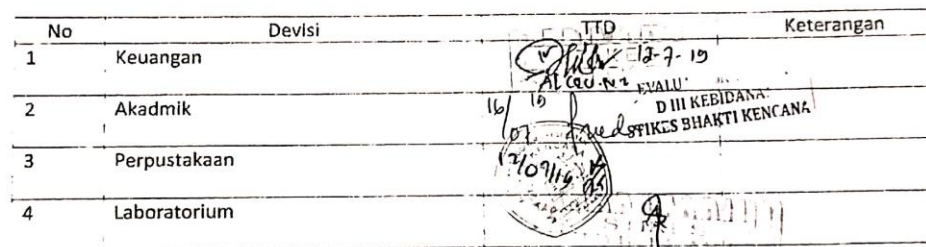 No Devisi TTD Keterangan
1 Keuangan 12-7-19
2 Akadmik 16/07 19
EVALU
D III KEBIDANA
STIKES BHAKTI KENCANA
3 Perpustakaan 12/07/19
4 Laboratorium